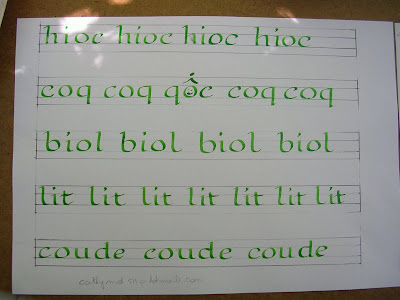 hioc hioc hioc hioc
coq coq qốc coq coq
biol biol biol biol
lit lit lit lit lit lit lit
coude coude coude